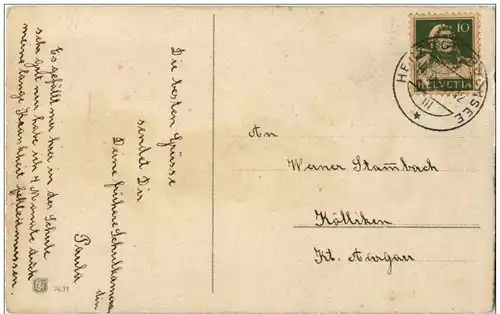 Die besten Grüsse
sendet Dir
Deine frühere Schulkamera
din
Paula
Es gefällt mir hier in der Schule
sehr gut nur habe ich 4 Monate durch
meine lange Krankheit fehlen müssen.
An
Werner Stambach
Kölliken
Kt. Aargau
10
HELVETIA
HE
SEE
III
7431